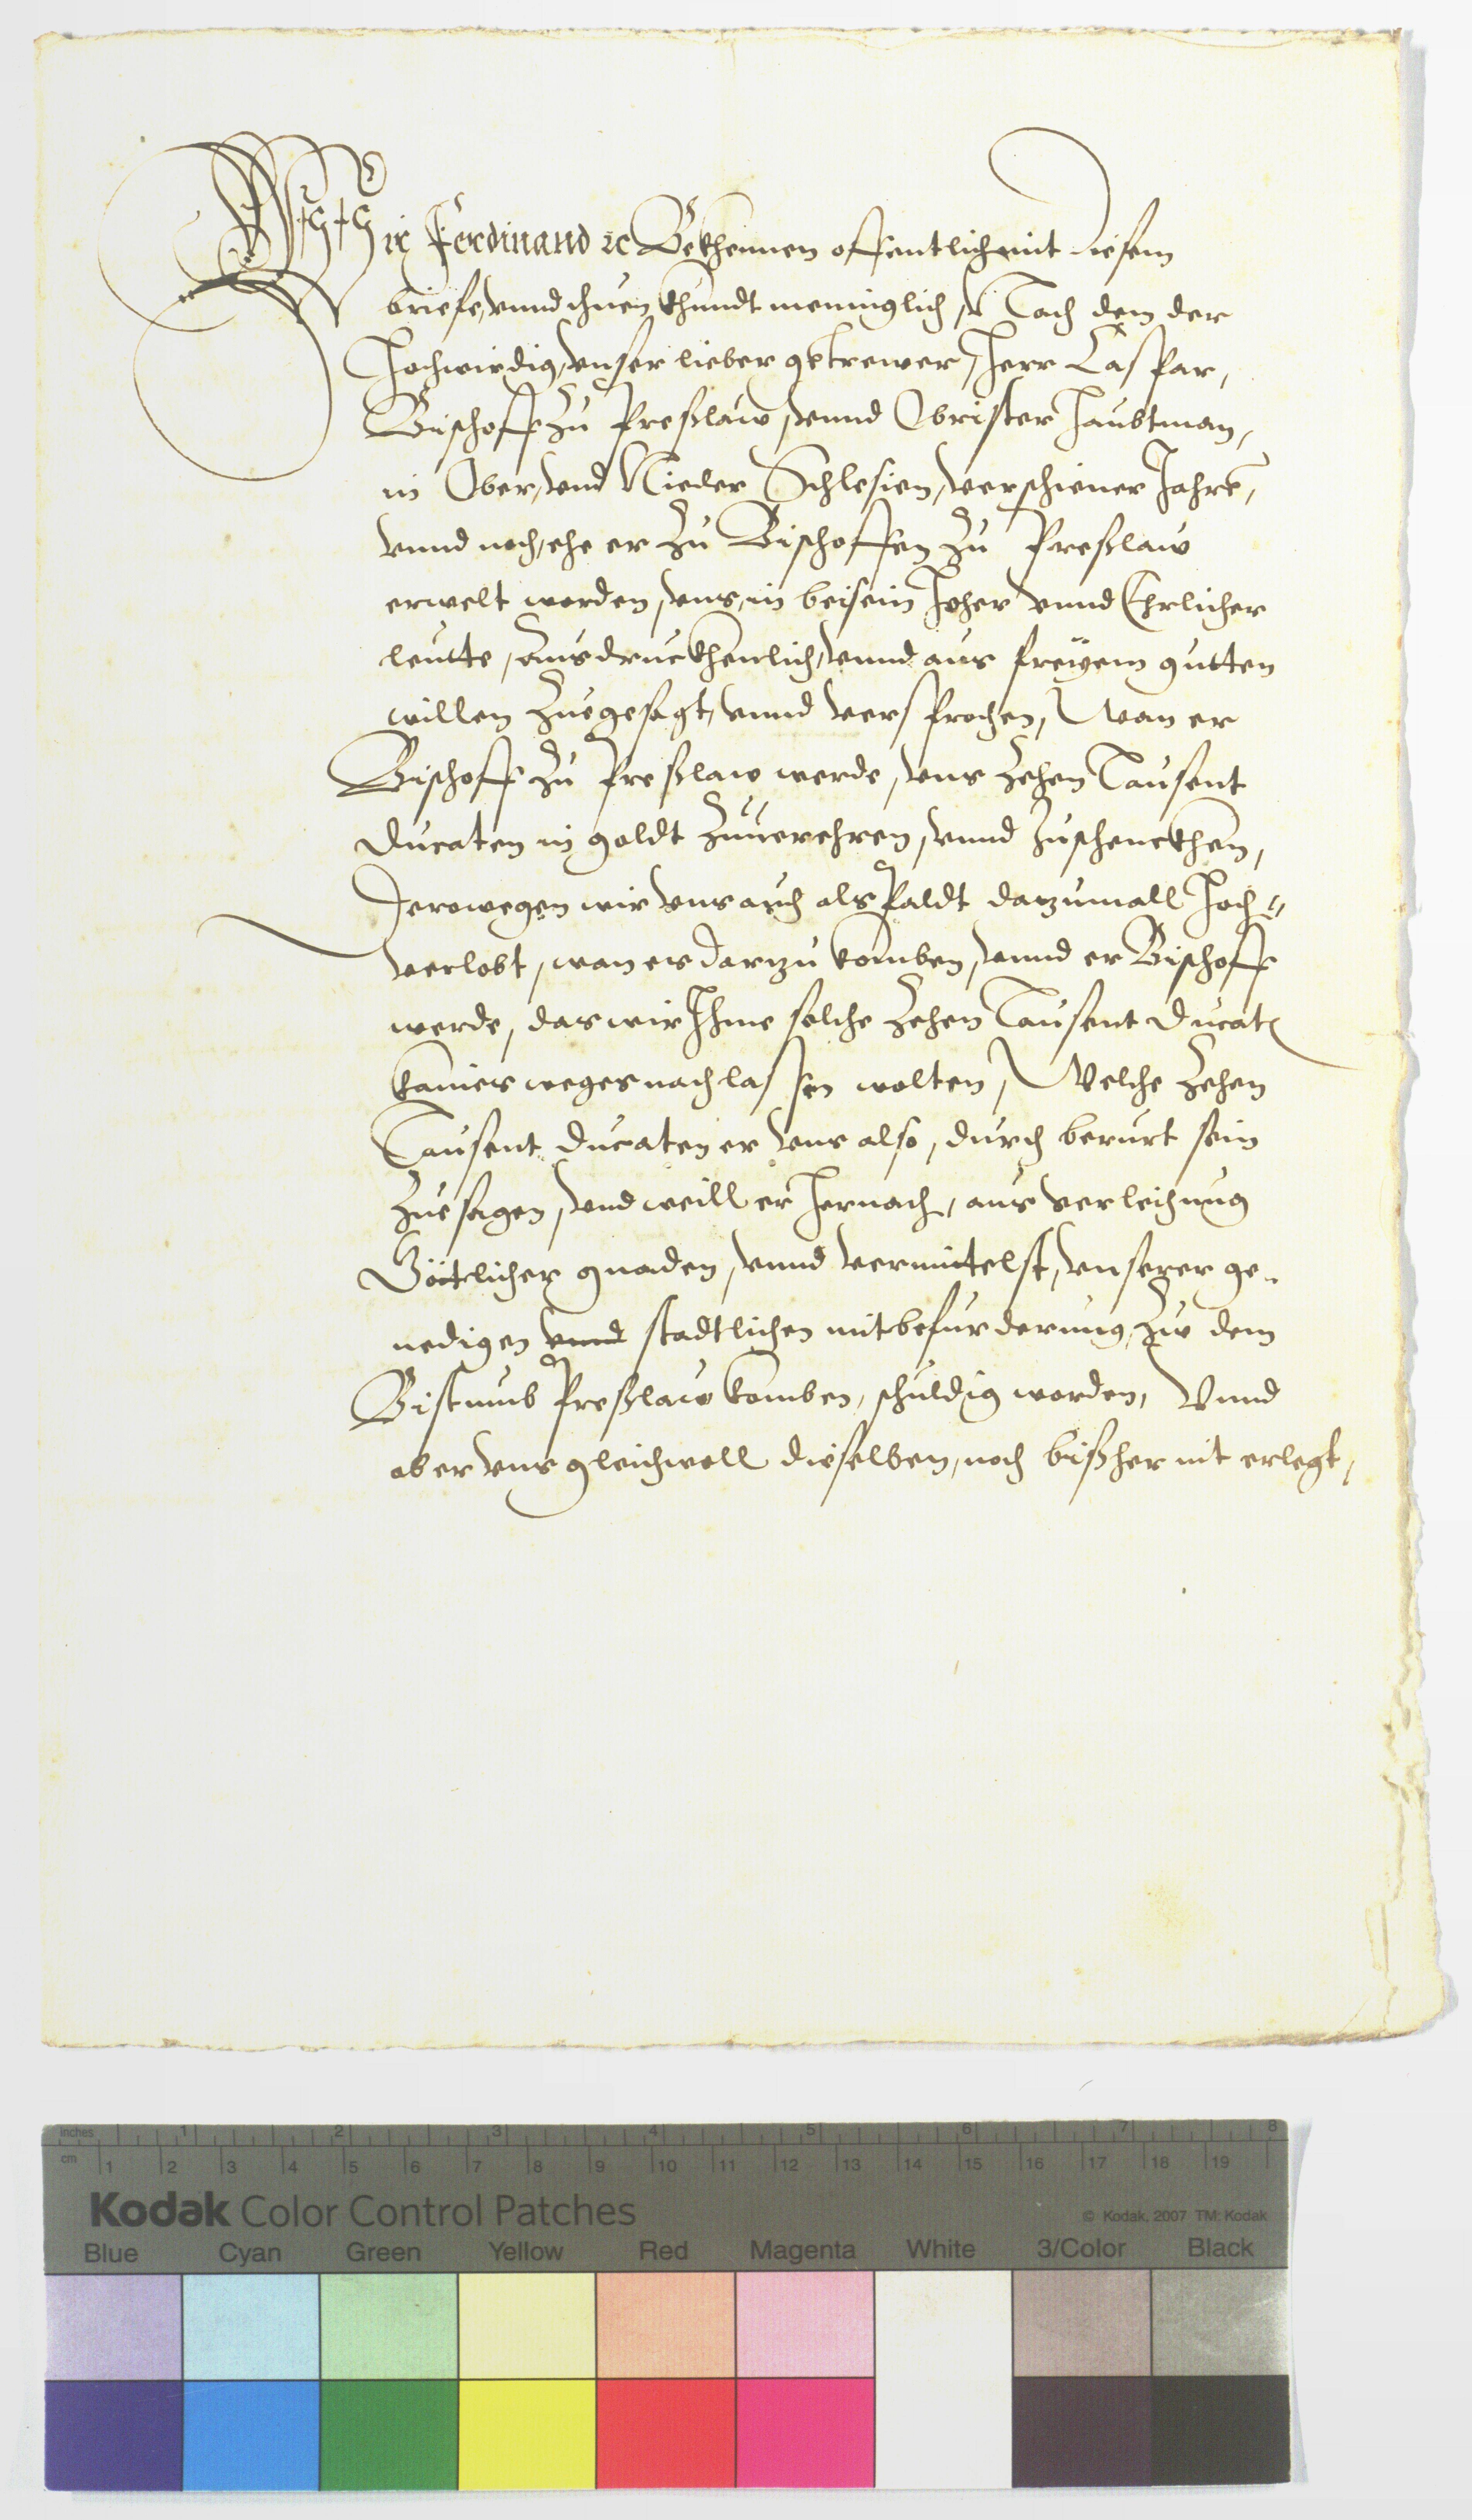 Wir Ferdinand ꝛc Bekhennen offentlich mit diesem
briefe, vnnd thuen khundt meniglich, Nach dem der
Hochwirdig, vnser lieber getrewer, Herr Caspar,
Bischoff zu Preßlaw, vnnd Obrister Haubtman,
in Ober, vnd Nieder Schlesien, verschiener Jahre,
vnnd noch, ehe er zu Bischoffen zu Preßlaw
erwelt worden, vns, in beisein Hoher vnnd Ehrlicher
leutte, Ausdruckhenlich, vnnd aus freÿem gutten
willen zuegesagt, vnnd versprochen, Wan er
Bischoff zu Preßlaw werde, vns zehen Tausent
Ducaten in goldt zuuerehren, vnnd zuschenckhen,
Derowegen wir vns auch als Paldt dazumall Hoch=
verlobt, wan es darzu komben, vnnd er Bischoff
werde, das wir Ihme solche zehen Tausent Ducat
kaines weges nachlassen wolten, Welche zehen
Tausent Ducaten er vns also, durch berurt sein
zuesagen, vnd weill er hernach, aus verleihung
Göttlicher gnaden, vnnd vermittelst, vnserer ge-
nedigen vnnd stadtlichen mitbefurderung, zue dem
Bistumb Preßlaw komben, schuldig worden, Vnnd
aber vns gleichwoll dieselben, noch bißher nit erlegt,
inches 1 2 3 4 5 6 7 8
cm 1 2 3 4 5 6 7 8 9 10 11 12 13 14 15 16 17 18 19
Kodak Color Control Patches
© Kodak, 2007 TM: Kodak
Blue Cyan Green Yellow Red Magenta White 3/Color Black